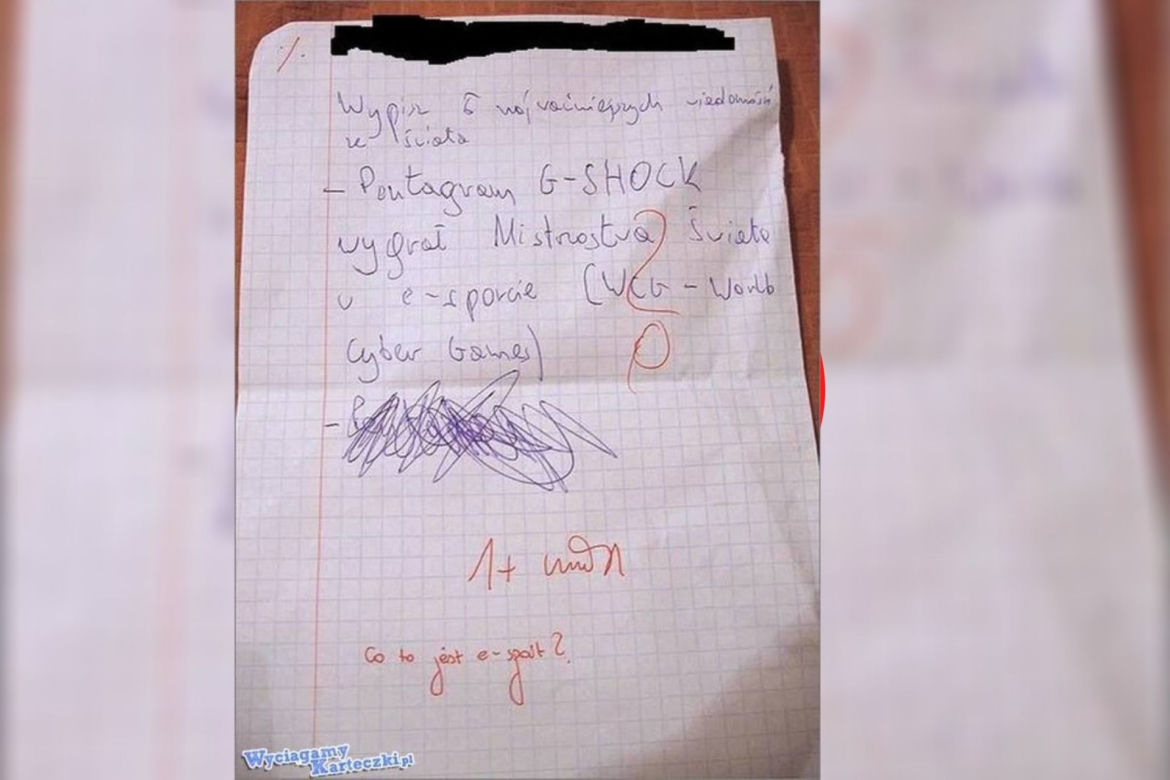 Wypisz 5 najważniejszych wiadomości
ze świata
- Pentagram G-SHOCK
wygrał Mistrzostwa Świata
w e-sporcie (WCG - World
Cyber Games)
-
1+
Co to jest e-sport?
Wyciagamy
Karteczki.pl